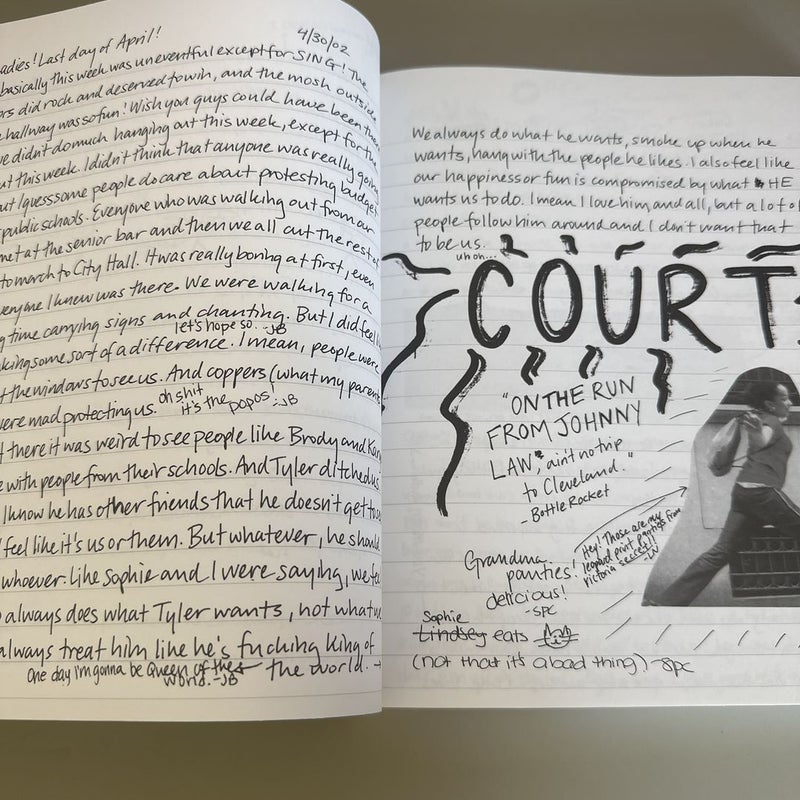 4/30/02
adies! Last day of April!
basically this week was uneventful except for SING! The
ors did rock and deserved to win, and the mosh outside
e hallway was so fun! Wish you guys could have been there
we didn't do much hanging out this week, except for the
ut this week. I didn't think that anyone was really going
out I guess some people do care about protesting budget
public schools. Everyone who was walking out from our
met at the senior bar and then we all cut the rest of
to march to City Hall. It was really boring at first, even
everyone I knew was there. We were walking for a
g time carrying signs and chanting. But I did feel l
let's hope so. -JB
king some sort of a difference. I mean, people were
t the windows to see us. And coppers (what my parents
oh shit it's the popos -JB
ere mad protecting us.
t there it was weird to see people like Brody and Kar
e with people from their schools. And Tyler ditched us
I know he has other friends that he doesn't get to se
feel like it's us or them. But whatever, he should
whoever. Like Sophie and I were saying, we fee
o always does what Tyler wants, not what w
always treat him like he's fucking king of
the world. →
One day I'm gonna be Queen of the
world. -JB
We always do what he wants, smoke up when he
wants, hang with the people he likes. I also feel like
our happiness or fun is compromised by what HE
wants us to do. I mean I love him and all, but a lot of
people follow him around and I don't want that
to be us.
uh oh...
COURT
"ON THE RUN
FROM JOHNNY
LAW, ain't no trip
to Cleveland."
- Bottle Rocket
Hey! Those are my
leopard print panties from
Victoria Secret!
-LN
Grandma
panties!
delicious!
-SPC
Sophie
Lindsey eats
(not that it's a bad thing) -SPC